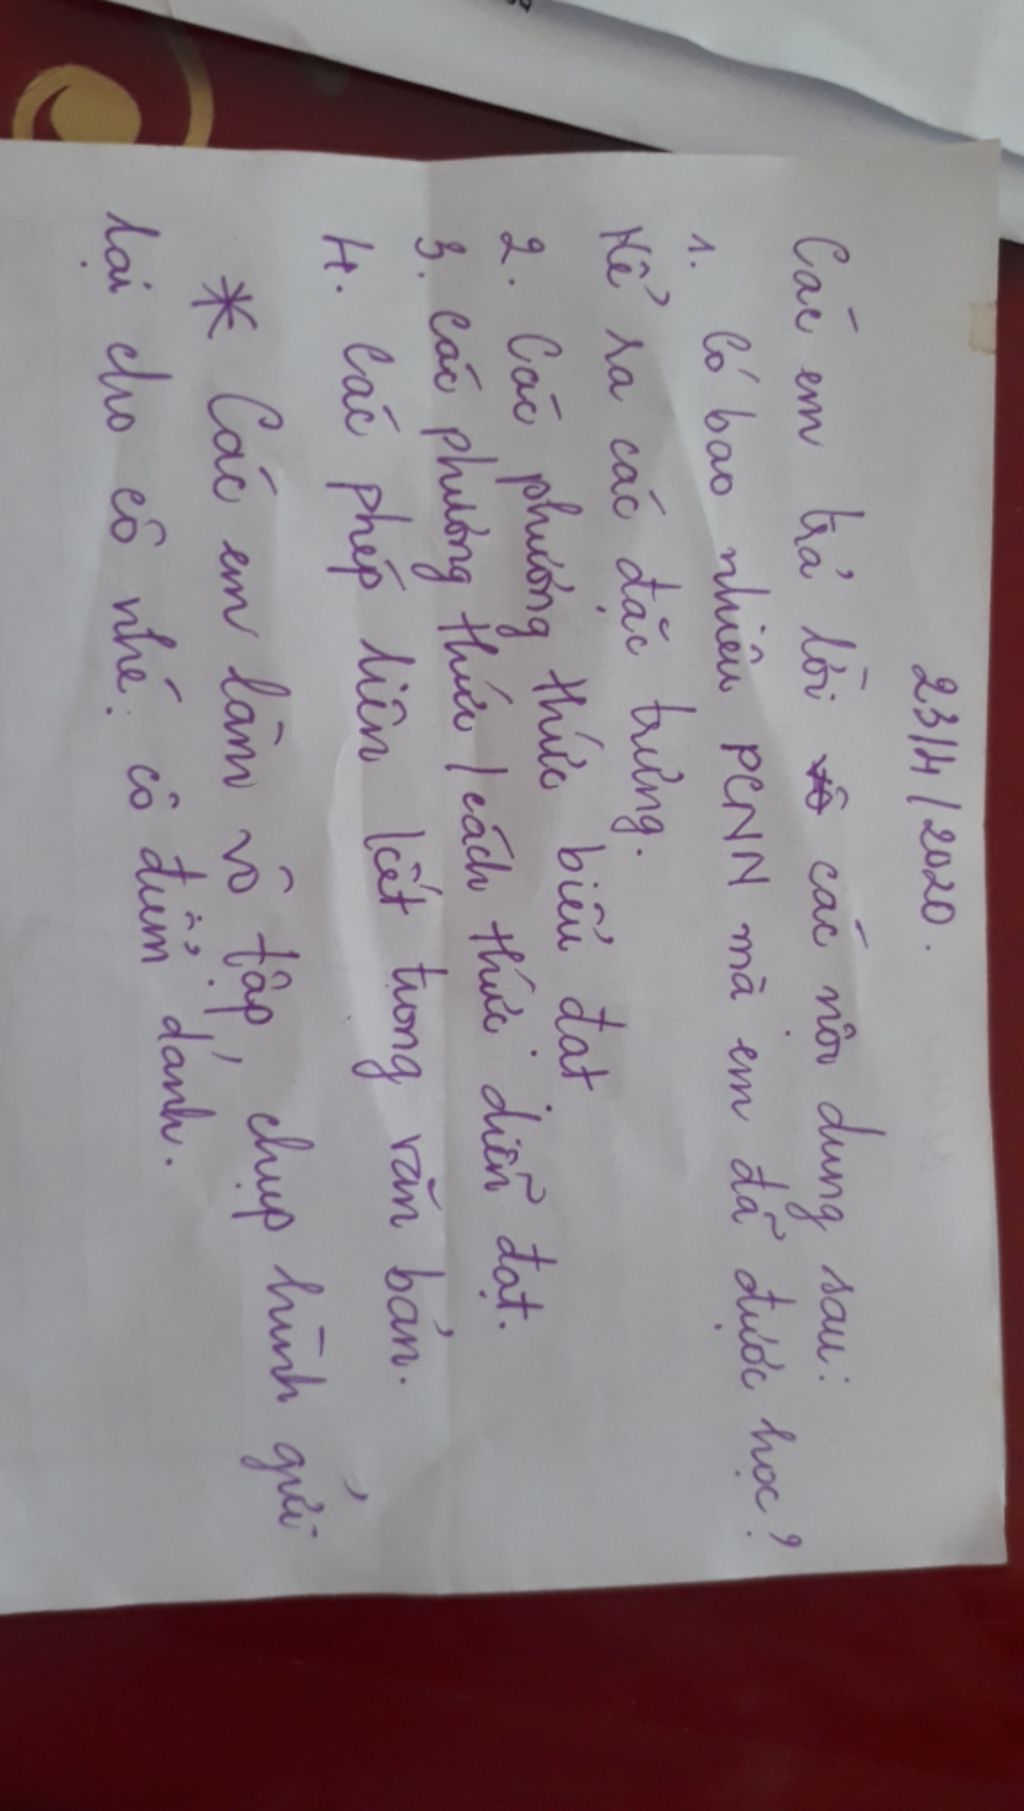 23/4/2020.
Các em trả lời các nội dung sau:
1. Có bao nhiêu PCNN mà em đã được học?
Kể ra các đặc trưng.
2. Các phương thức biểu đạt
3. Các phương thức / cách thức diễn đạt.
4. Các phép liên kết trong văn bản.
* Các em làm vô tập, chụp hình gửi
lại cho cô nhé. cô điểm danh.